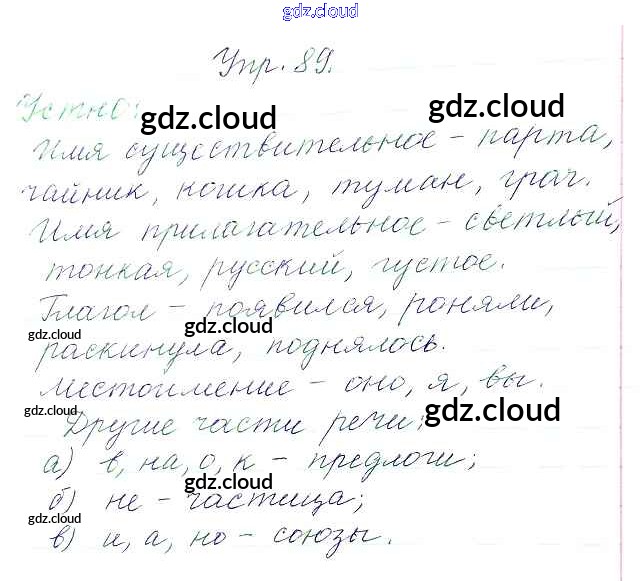 gdz.cloud
Упр. 89.
Устно:
gdz.cloud gdz.cloud
Имя существительное – парта,
чайник, кошка, туман, грач.
Имя прилагательное – светлый,
тонкая, русский, густое.
Глагол – появился, роняли,
gdz.cloud gdz.cloud
раскинула, поднялось.
Местоимение – оно, я, вы.
gdz.cloud gdz.cloud
Другие части речи:
а) в, на, о, к – предлоги;
б) не – частица;
gdz.cloud gdz.cloud
в) и, а, но – союзы.